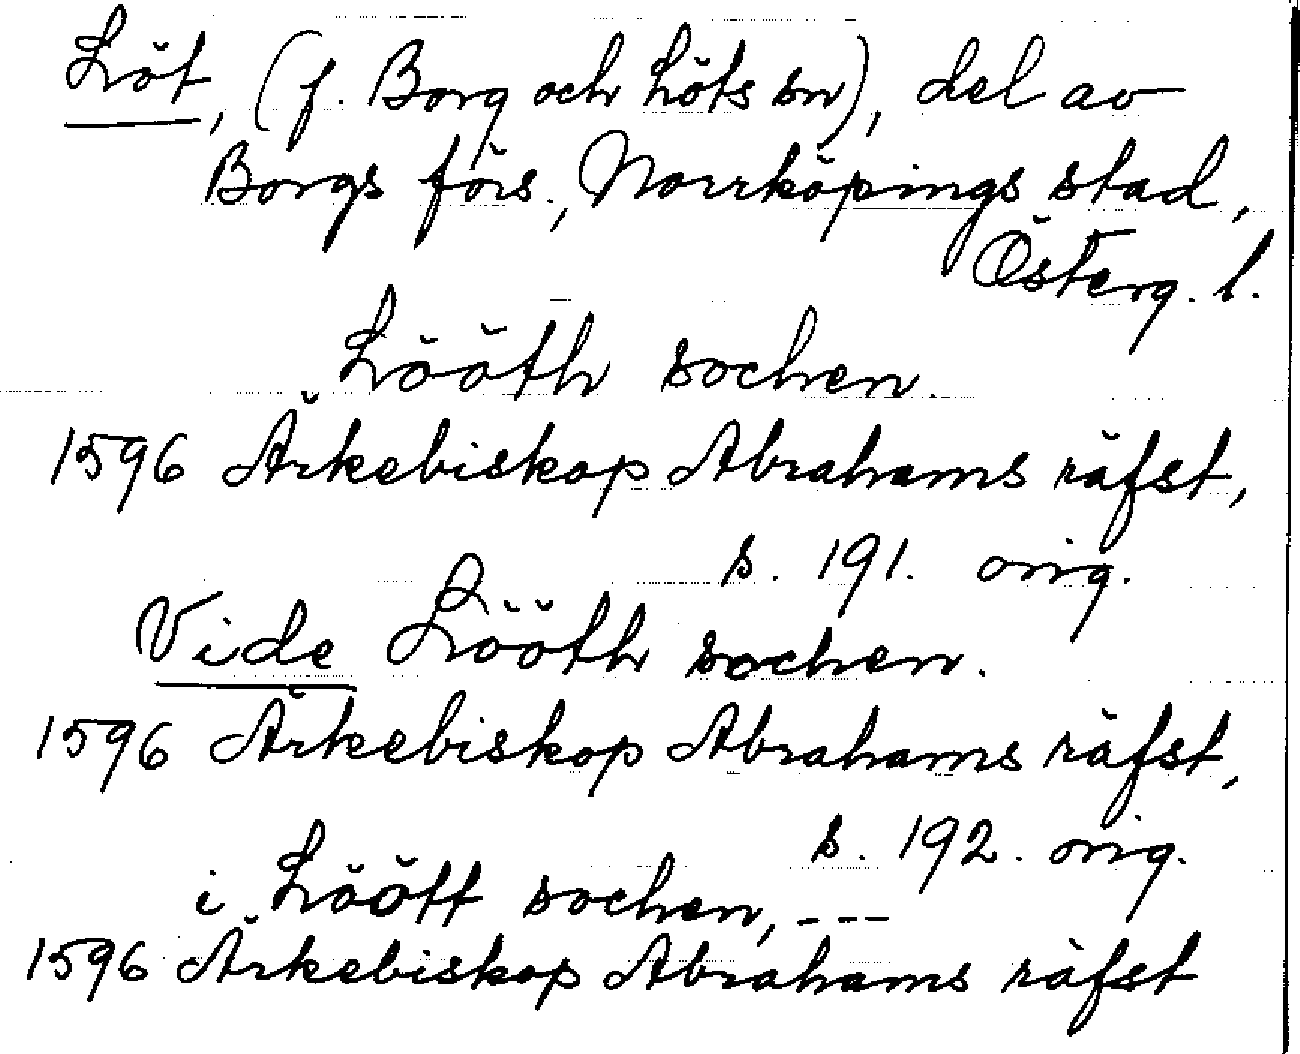 Löt, (f. Borg och Löts sn), del av
Borgs förs., Norrköpings stad,
Österg. l.
Lööth sochen.
1596 Ärkebiskop Abrahams räfst,
s. 191. orig.
Vide Lööth sochen.
1596 Ärkebiskop Abrahams räfst,
s. 192. orig.
i Löött sochen, ---
1596 Ärkebiskop Abrahams räfst